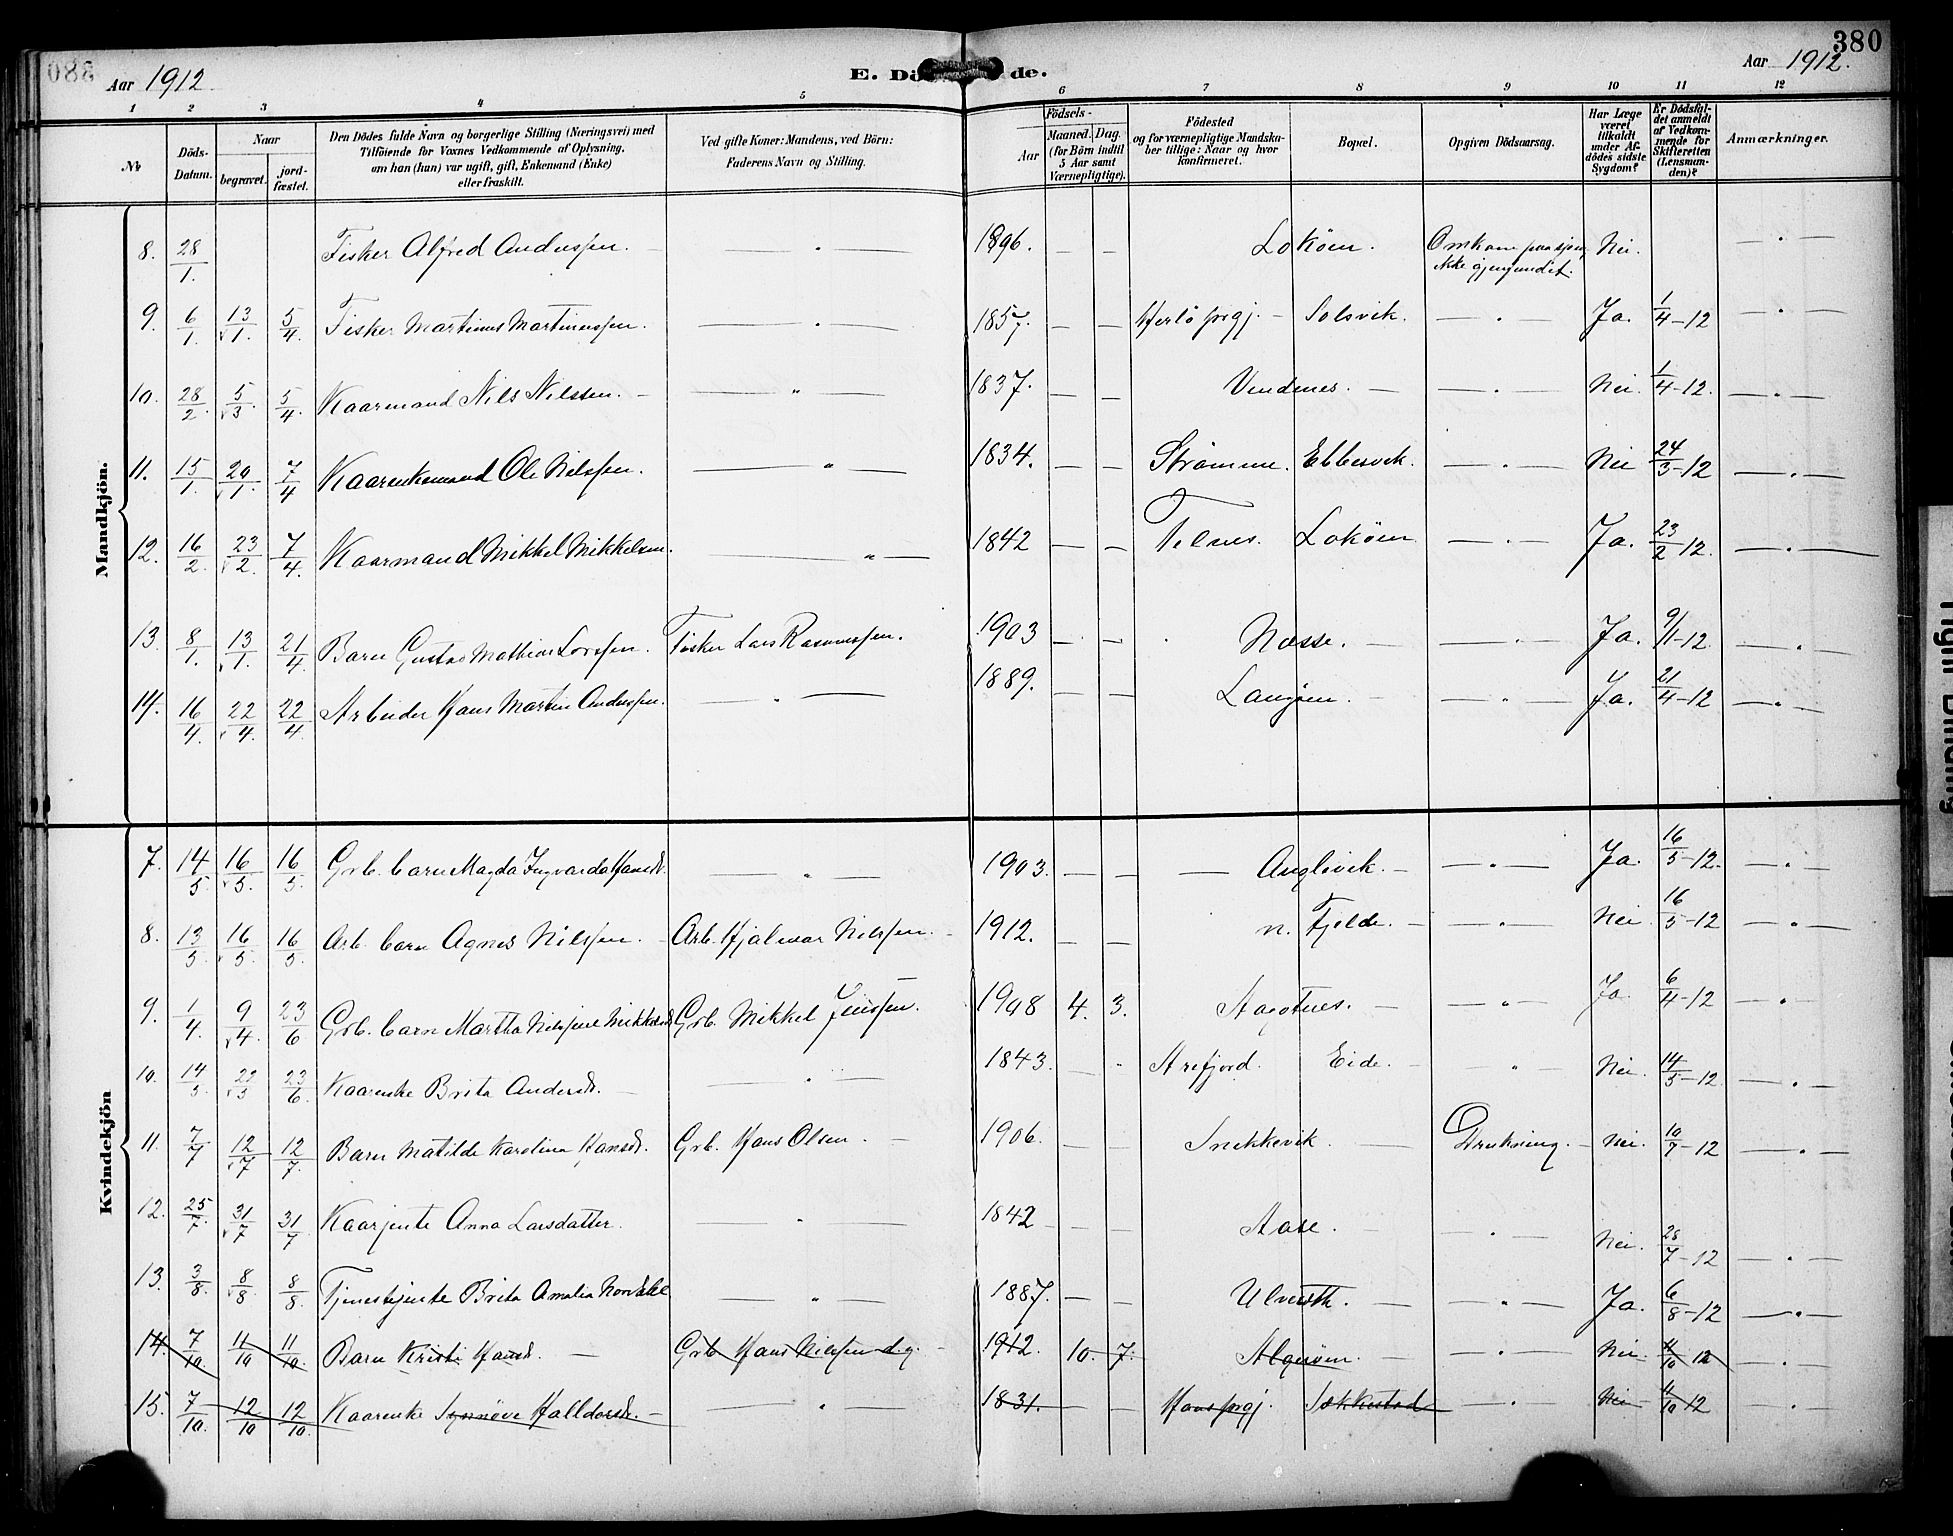 380
Aar 1912. E. Dö de. Aar 1912.
1 2 3 4 5 6 7 8 9 10 11 12
№ Döds-Datum. Naar begravet. jordfæstet. Den Dödes fulde Navn og borgerlige Stilling (Næringsvei) med Tilföiende for Voxnes Vedkommende af Oplysning, om han (hun) var ugift, gift, Enkemand (Enke) eller fraskilt. Ved gifte Koner: Mandens, ved Börn: Faderens Navn og Stilling. Födsels- Aar Maaned. Dag. (for Börn indtil 5 Aar samt Værnepligtige). Födested og for værnepligtige Mandskaber tillige: Naar og hvor konfirmeret. Bopæl. Opgiven Dödsaarsag. Har Læge været tilkaldt under Afdödes sidste Sygdom? Er Dödsfaldet anmeldt af Vedkommende for Skifteretten (Lensmanden)? Anmærkninger.
Mandkjön.
8. 28/1. Fisker Alfred Anderssen. — " — 1896. — — Lokøen. Omkom paa sjøen, ikke gjenfundet. Nei. — " —
9. 6/1. 13/1. 5/4. Fisker Martinus Martinussen. — " — 1857. — — Herlø prgj. — Solsvik. — " — Ja. 1/4-12 — " —
10. 28/2. 5/3. 5/4. Kaarmand Nils Nilssen. — " — 1837. — — Vindenes. — — " — Nei. 1/4-12. — " —
11. 15/1. 20/1. 7/4 Kaarenkemand Ole Nilssen. — " — 1834. — — Strømme. Ebbesvik. — " — Nei 24/3-12 — " —
12. 16/2. 23/2. 7/4. Kaarmand Mikkel Mikkelsen. — " — 1842 — — Telnes. Lokøen — " — Ja. 23/2-12. — " —
13. 8/1. 13/1. 21/4. Barn Gustav Mathias Larssen. Fisker Lars Rasmussen. 1903 — — Næsse. — " — Ja. 9/1-12. — " —
14. 16/4. 22/4. 22/4. Arbeider Hans Martin Anderssen. — " — 1889. — — Langøen. — — " — Ja. 21/4-12 — " —
Kvindekjön
7. 14/5. 16/5. 16/5. Grb. barn Magda Ingvarda Hansd. — " — 1903. — — — Anglevik. — — " — Ja. 16/5-12. — " —
8. 13/5. 16/5. 16/5. Arb. barn Agnes Nilssen. — Arb. Hjalmar Nilssen. — 1912. — — n. Fjelde. — — " — Nei 16/5-12 — " —
9. 1/4. 9/4. 23/6 Grb. barn Martha Nilsine Mikkelsd. Grb. Mikkel Jenssen. 1908 4. 3. Aagotnes. — — " — Ja 6/4-12 — " —
10. 14/5. 22/5 23/6. Kaarenke Brita Andersd. — " — 1843. — " Arefjord Eide. — " Nei. 14/5-12. — " —
11. 7/7 12/7 12/7. Barn Matilde Karolina Hansd. Grb. Hans Olsen. — 1906. — — Snekkevik. — Drukning. — Nei. 10/7-12 — " —
12. 25/7. 31/7 31/7 Kaarjente Anna Larsdatter. — " — 1842 — — Aase. — " — Nei. 28/7-12 — " —
13. 3/8. 8/8. 8/8. Tjenestejente Brita Amalia — " — 1887. — — Ulveseth. — — " — Ja. 6/8-12 — " —
14. 7/10. 11/10 11/10. Barn Kristi Hansd. — Grb Hans Nilssen d.y. — 1912. 10. 7. Algerøen. — " — Nei. 11/10-12 — " —
15. 7/10. 12/10 12/10. Kaarenke Synnøve Halldorsd. — — " — 1831. — — Haus prgj. Sækkestad — " — Nei 11/10 12 — " —